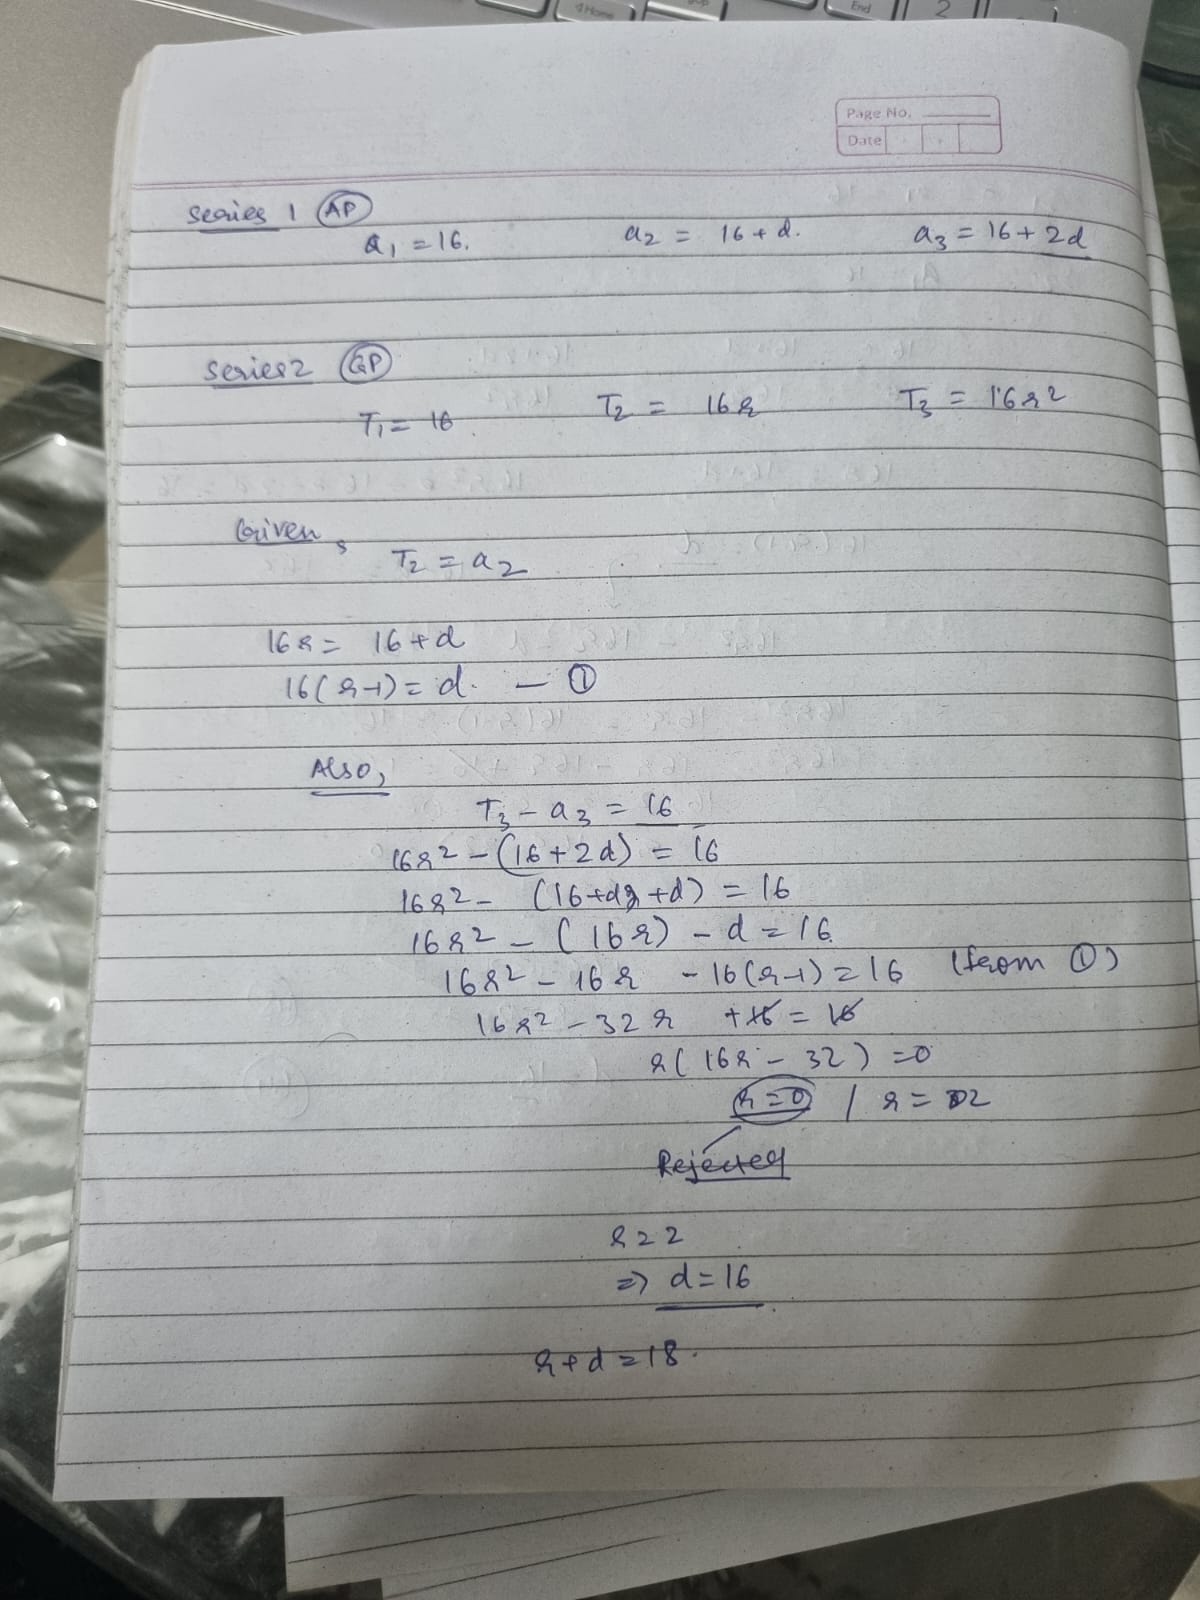 Home
End
2
Page No.
Date
Series 1 (AP)
a₁ = 16. a₂ = 16 + d. a₃ = 16 + 2d
Series 2 (GP)
T₁ = 16 T₂ = 16r T₃ = 16r²
Given,
T₂ = a₂
16r = 16 + d
16(r-1) = d. — ①
Also,
T₃ - a₃ = 16
16r² - (16 + 2d) = 16
16r² - (16 + d + d) = 16
16r² - (16r) - d = 16
16r² - 16r - 16(r-1) = 16 (from ①)
16r² - 32r + 16 = 16
r(16r - 32) = 0
r = 0 / r = 2
Rejected
r = 2
=> d = 16
r + d = 18.